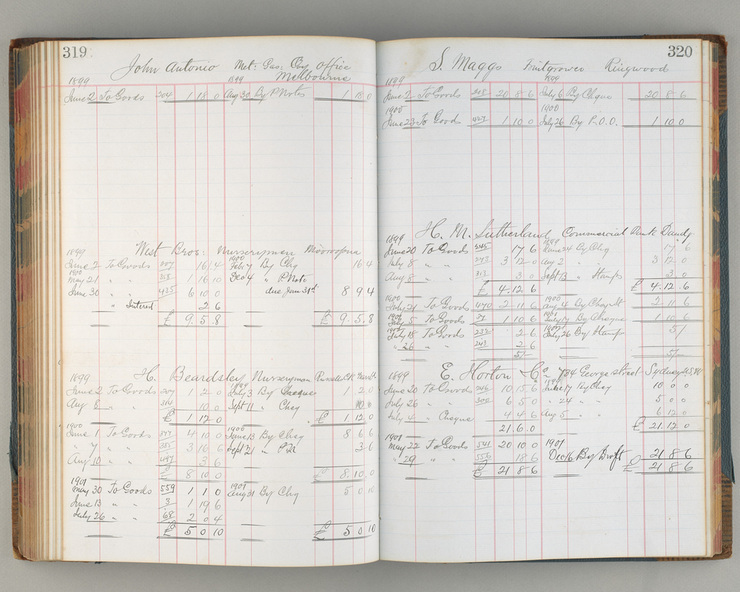 319
John Antonio Met: Gas: Coy Office
1899 1899 Melbourne
June 2 To Goods 204 1 18 0 Aug 30 By P Notes 1 18 0
West Bros: Nurseryman Mooroopna
1899 1900
June 2 To Goods 16 4 Feby 7 By Chq 16 4
1901
May 21 " " 1 16 10 Dec 4 " P Note
June 30 " " 435 6 10 0 due Jan 31st 8 9 4
" Interest 2 6
£ 9 5 8 £ 9 5 8
H. Beardsley Nurseryman
1899 1899
June 2 To Goods 1 2 0 July 3 By Cheque 1 2 0
Aug 10 0 Sept 11 " Chq 10 0
£ 1 12 0 £ 1 12 0
1900 1900
June 1 To Goods 4 10 0 June 13 By Chq 8 6 6
" 7 " " 3 16 6 Sept 21 " P.N 3 6
Aug 10 " " 3 6
£ 8 10 0 £ 8 10 0
1901 1901
May 30 To Goods 559 1 1 0 Aug 31 By Chq 5 0 10
June 13 " " 3 1 19 6
July 26 " " 68 2 0 4
£ 5 0 10 £ 5 0 10
320
S. Maggs Fruitgrower Ringwood
1899 1899
June 2 To Goods 20 8 6 July By Cheque 20 8 6
1900 1900
June 23 To Goods 427 1 10 0 July 26 By P.O.O. 1 10 0
H. M. Sutherland Commercial Bank Dandg
1899 1899
June 20 To Goods 17 6 June 24 By Chq 17 6
July 8 " " 3 12 0 Aug 2 " " 3 12 0
Aug 3 0 Sept 13 " Stamps 3 0
£ 4 12 6 £ 4 12 6
1900 1900
July 31 To Goods 470 2 11 6 Aug 4 By Cheque 2 11 6
July 5 To Goods 21 1 10 6 July 17 By Cheque 1 10 6
July 18 To Goods 2 6 July 26 By Stamps 5/
" 26 " " 2 6
5/- 5/-
E. Horton & Co 784 George street Sydney N.S.W.
1899
June 20 To Goods 10 15 6 By Chq 10 0 0
July 26 " " 6 5 0 " 24 " " 5 0 0
July " Cheque 4 4 6 Aug 5 " " 6 12 0
21 6 0 £ 21 12 0
1901 1901
May 22 To Goods 541 20 10 0 Dec 16 By Draft 21 8 6
" 29 " " 556 18 6
£ 21 8 6 £ 21 8 6